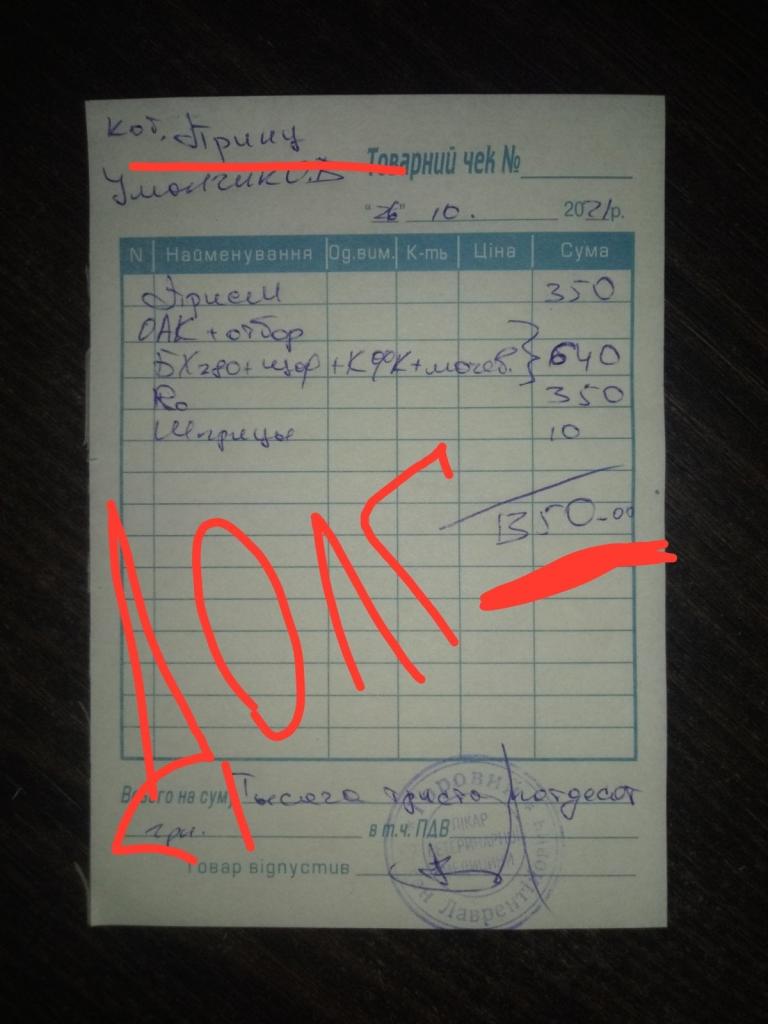 кот. Принц
Товарний чек №
"26" 10. 2021р.
N Найменування Од.вим. К-ть Ціна Сума
Прием 350
ОАК + отбор
БХ + КФК + мочев. 640
Ro 350
Шприцы 10
1350-00
ДОЛГ
Всього на суму Тысяча триста пятдесят
грн. в т.ч. ПДВ
Товар відпустив
ЛІКАР
ВЕТЕРИНАРНОЇ
МЕДИЦИНИ
Лаврентійович